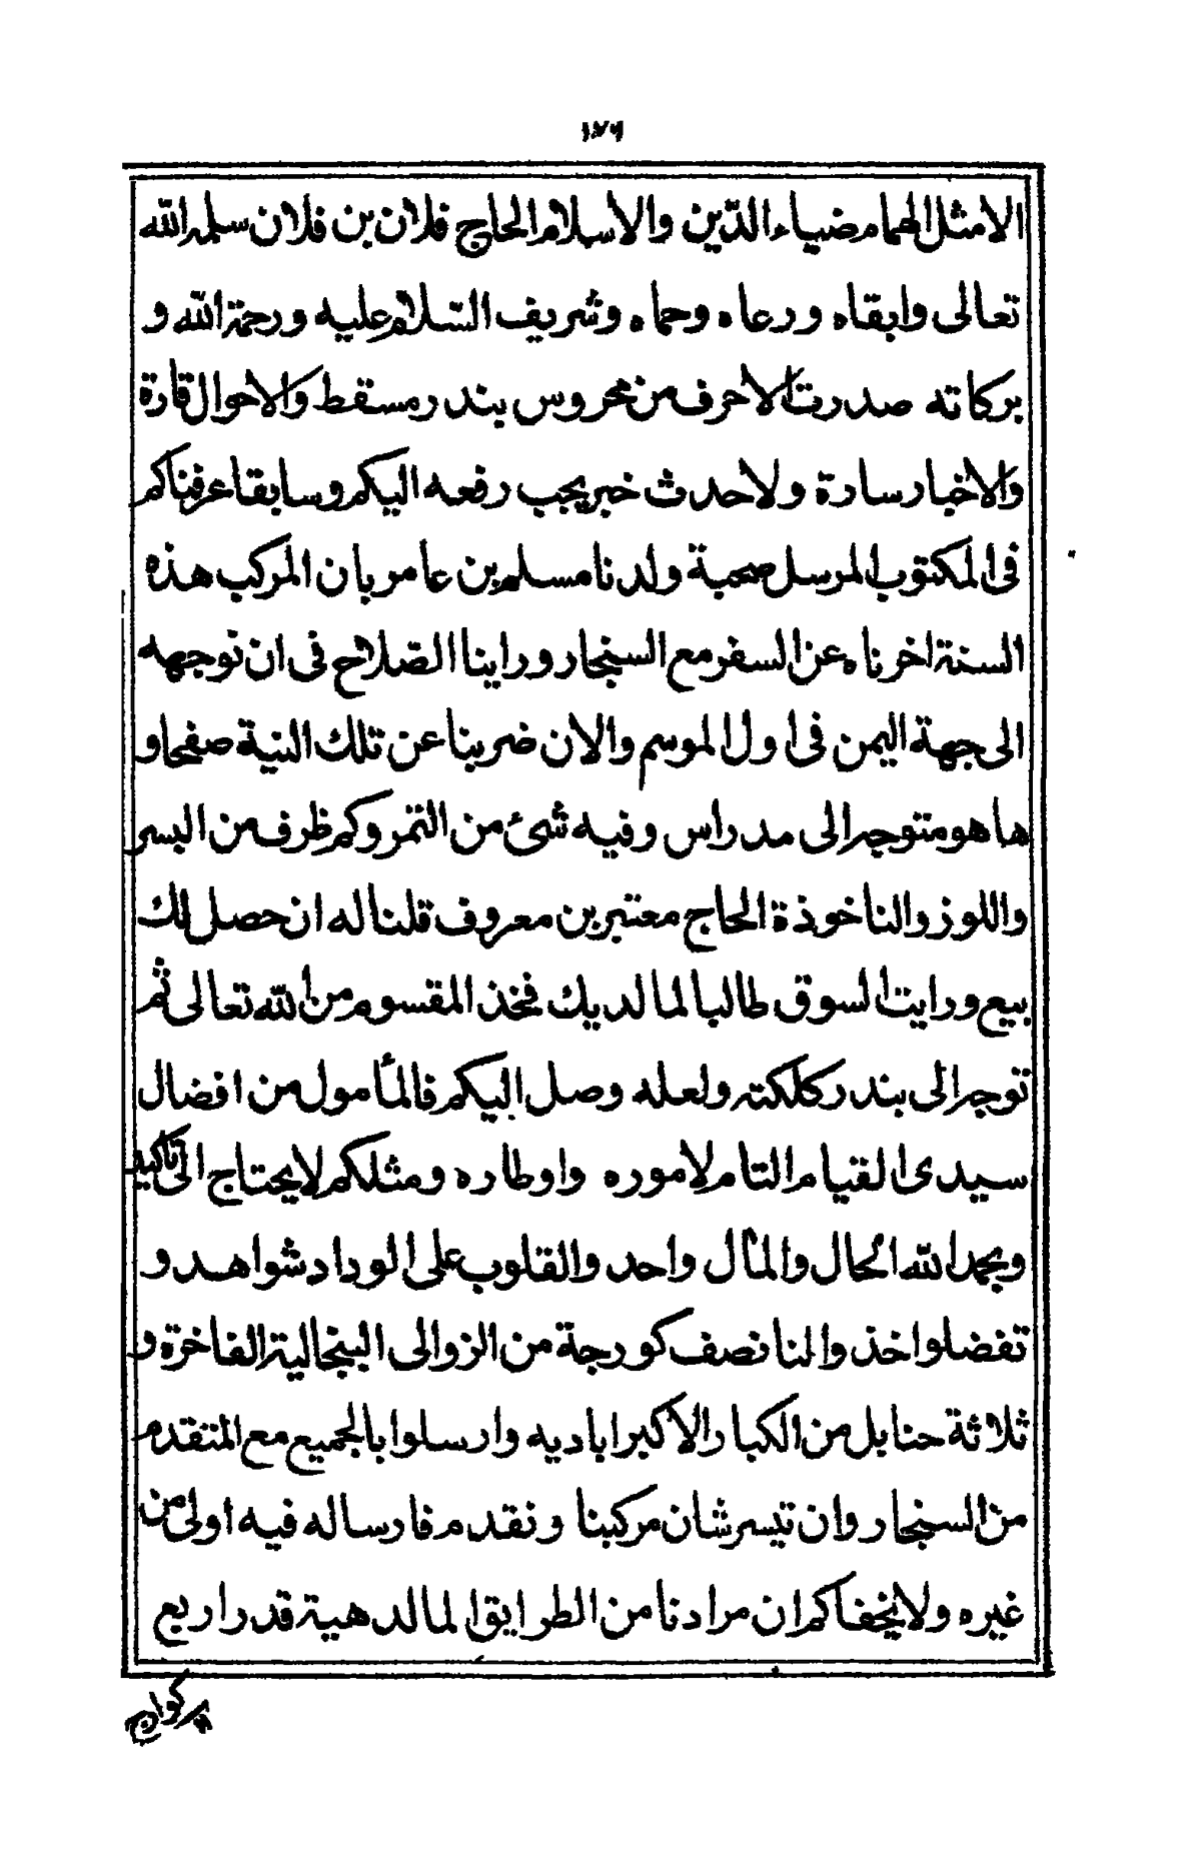 ١٧٦
الامثل الهمام ضياء الدّين والأسلام الحاج فلان بن فلان سلمه الله
تعالى وابقاه ورعاه وحماه وشريف السّلام عليه ورحمة الله و
بركاته صدرت الاحرف من محروس بندر مسقط والاحوال قارة
والاخبار سارة ولا حدث خبر يجب رفعه اليكم وسابقا عرفناكم
فى المكتوب المرسل صحبة ولدنا مسلم بن عامر بان المركب هذه
السنة اخرناه عن السفر مع السنجار وراينا الصّلاح فى ان توجهه
الى جهة اليمن فى اول الموسم والان ضربنا عن تلك النية صفحا و
ها هو متوجه الى مدراس وفيه شئ من التمر وكم ظرف من البسر
واللوز والناخوذة الحاج معتبر بن معروف قلنا له ان حصل لك
بيع ورايت السوق طالبا لما لديك فخذ المقسوم من الله تعالى ثم
توجه الى بندر كلكته ولعله وصل اليكم فالمأمول من افضال
سيدى القيام التام لاموره واوطاره ومثلكم لا يحتاج الى تاكيد
وبحمد الله الحال والمال واحد والقلوب على الوداد شواهد و
تفضلوا خذوا لنا نصف كورجة من الزوالى البنجالية الفاخرة و
ثلاثة حنابل من الكبار الاكبراباديه وارسلوا بالجميع مع المتقدم
من السنجار وان تيسر شان مركبنا ونقدم فارساله فيه اولى من
غيره ولا يخفاكم ان مرادنا من الطرايق المالدهية قدر اربع
كوارج